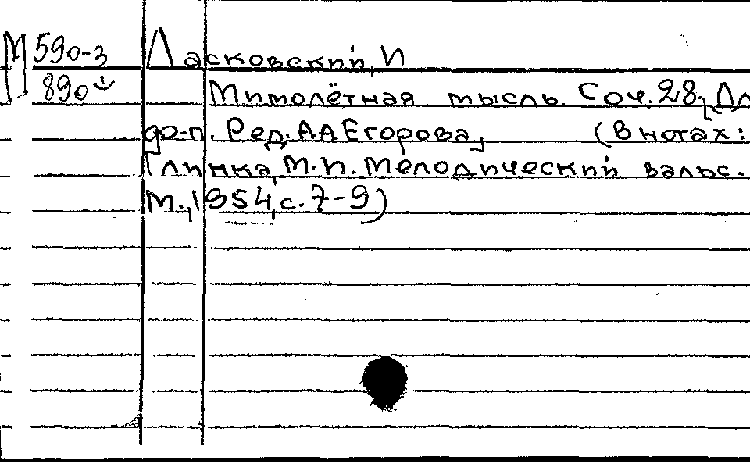 М 590-3 Ласковский, И
890
Мимолётная мысль. Соч. 28, Дл
до-п. Ред. А.А Егорова, (В нотах:
Глинка, М.И. Мелодический вальс.
М., 1954, с. 7-9)